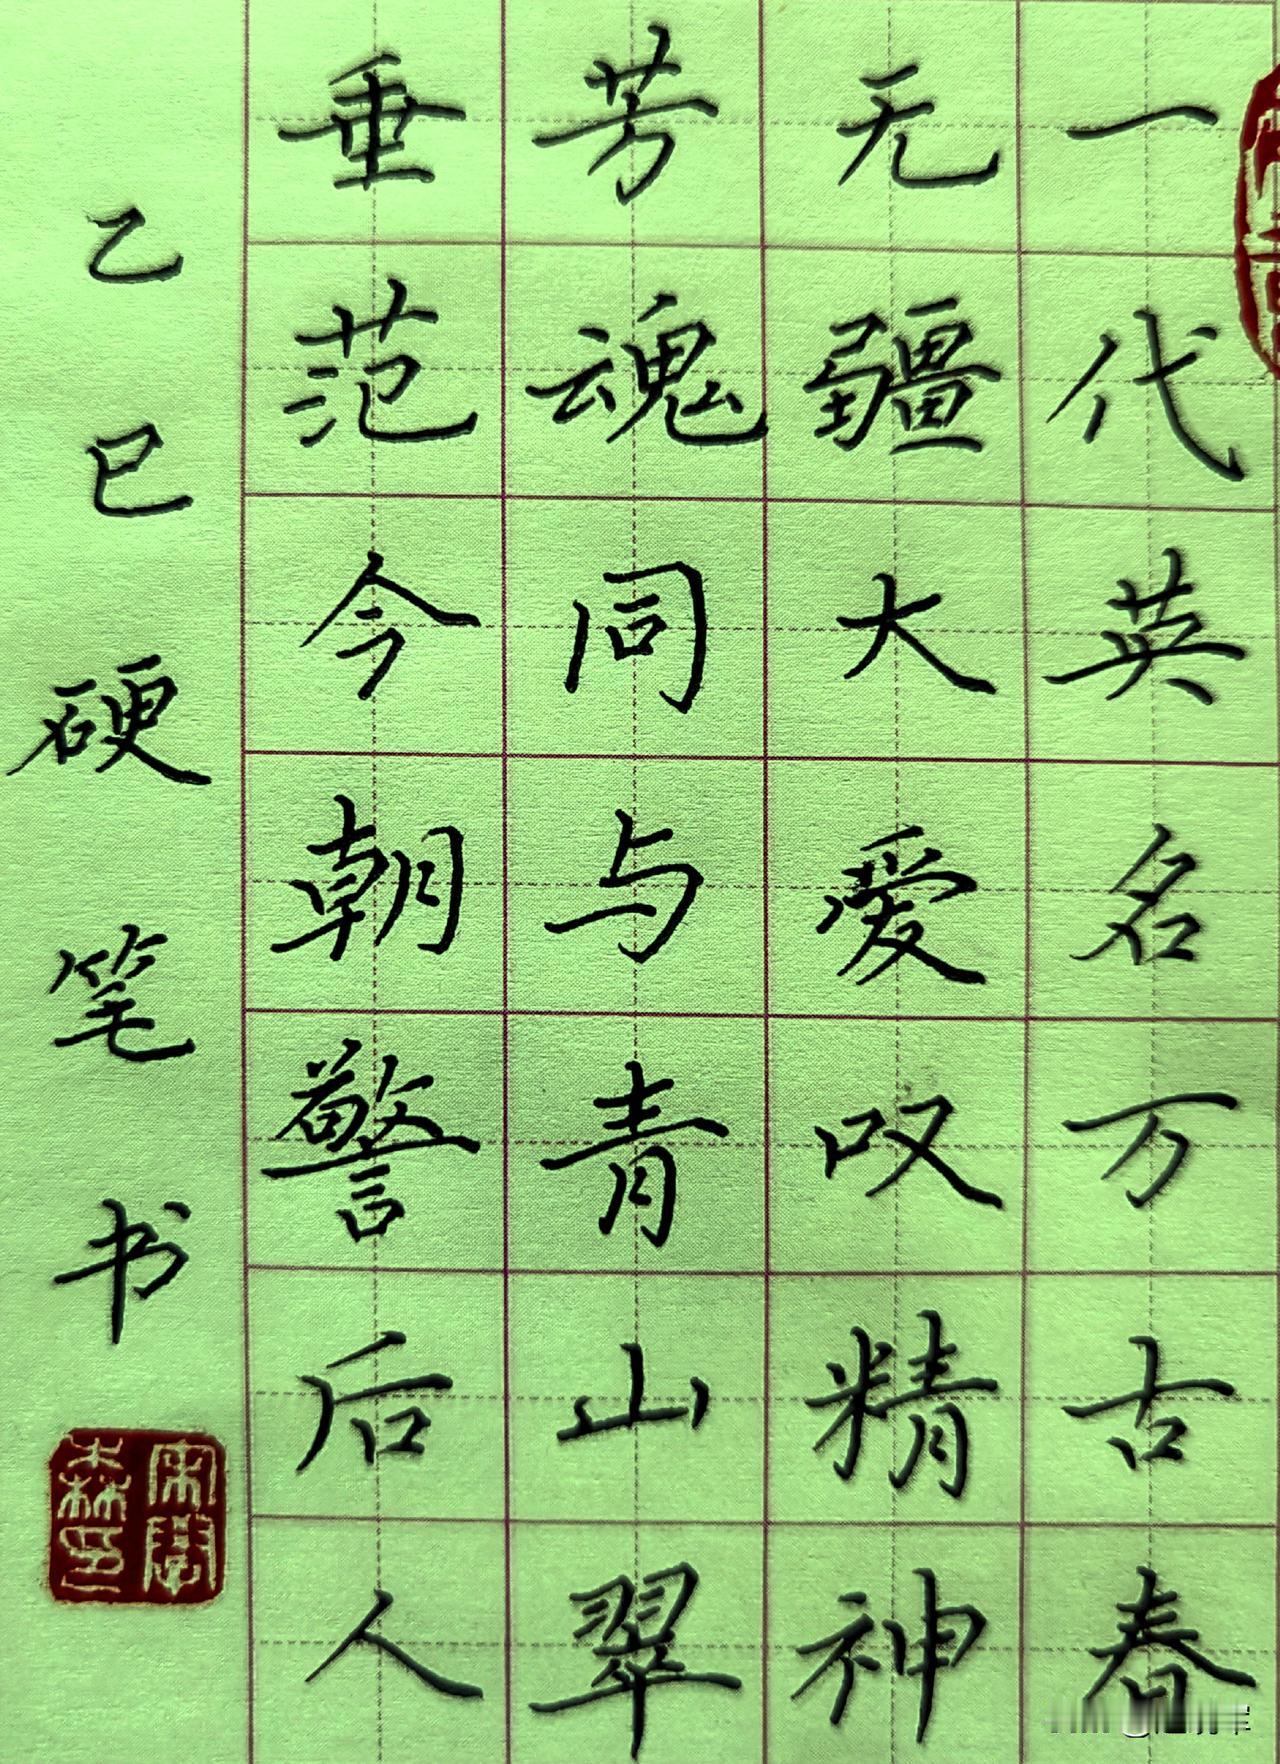 一代英名万古春
无疆大爱叹精神
芳魂同与青山翠
垂范今朝警后人
乙巳硬笔书